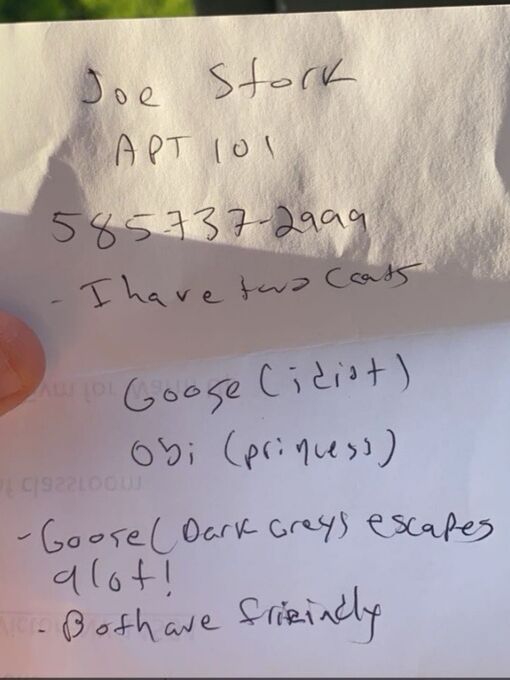 Joe Stork
APT 101
585-737-2999
- I have two Coats
Goose (idiot)
Obi (princess)
- Goose (Dark Greys escapes
alot!
- Both are friindly